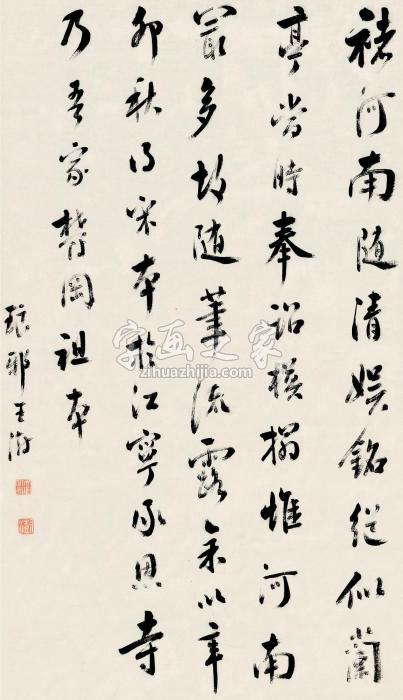 褚河南随清娱銘絕似蘭
亭當時奉詔模搨惟河南
最多故随筆流露余以辛
卯秋得宋本於江寧承恩寺
乃吾家鬱岡祖本
琅邪王澍
字画之家
zihuazhijia.com